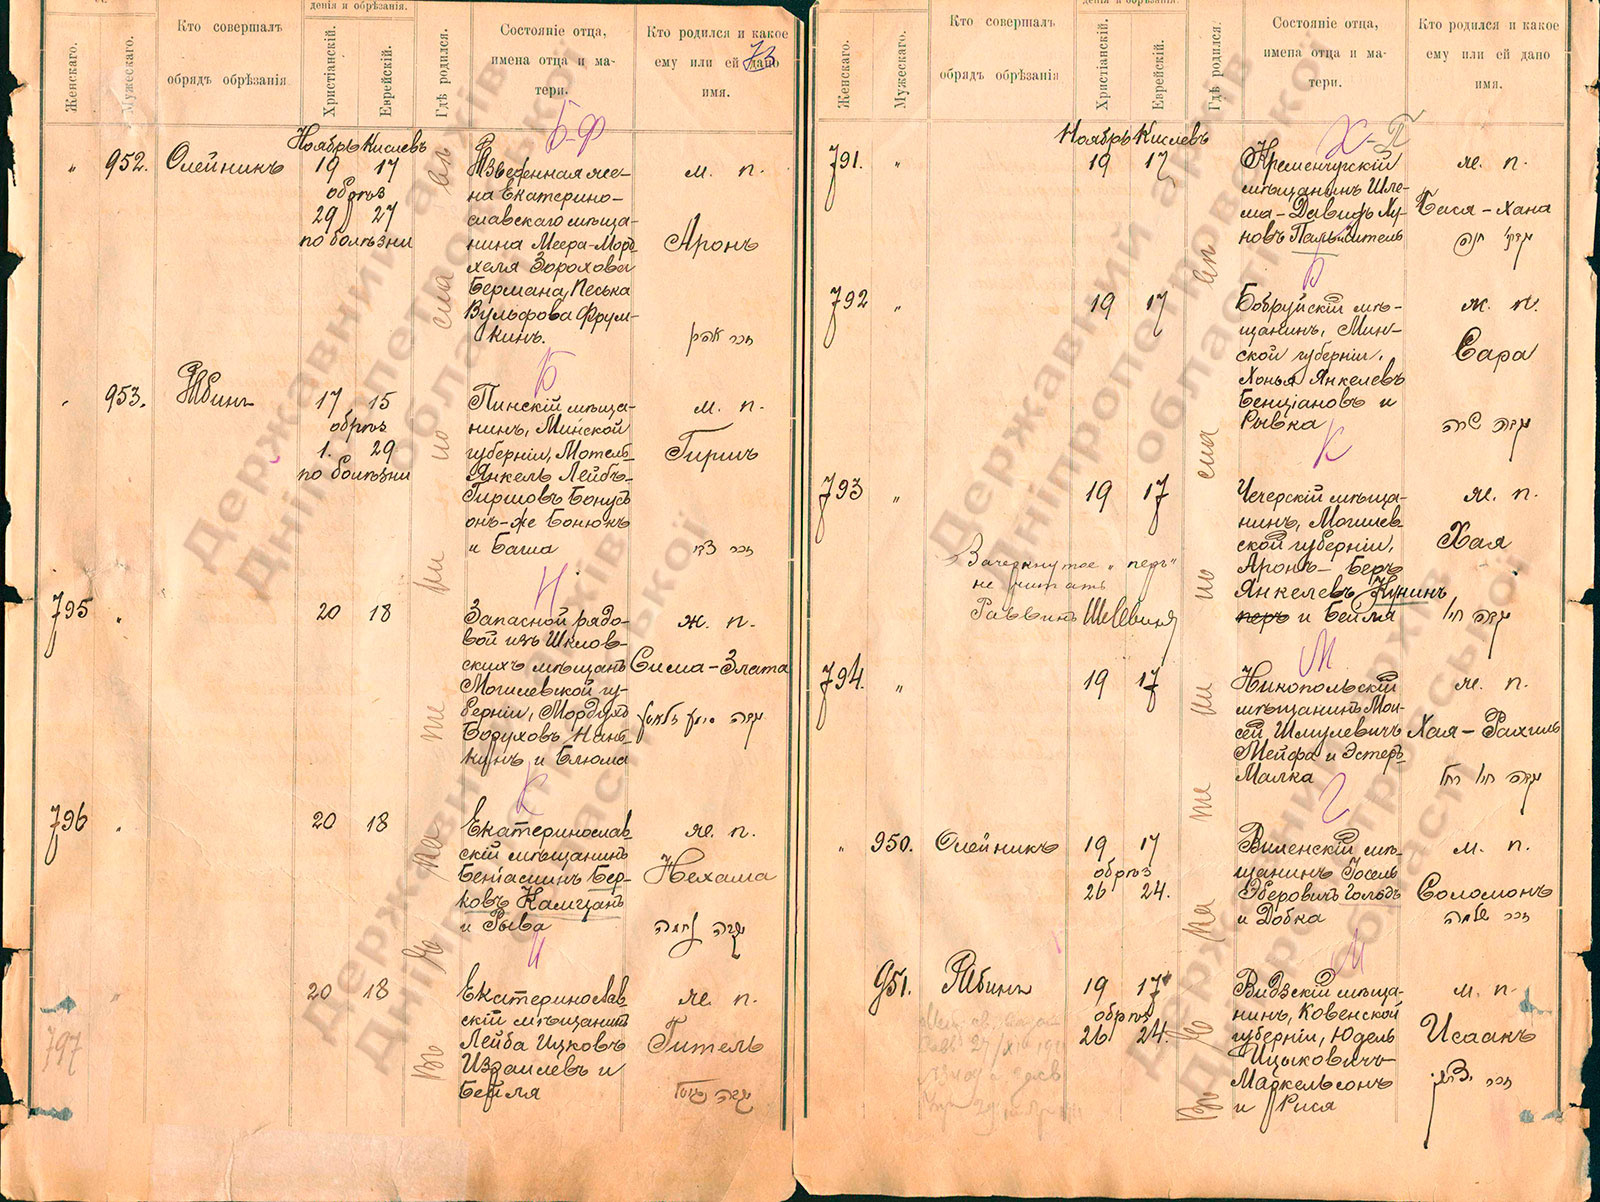 дения и обрѣзанія.
Женскаго.
Мужескаго.
Кто совершалъ
обрядъ обрѣзанія
Христіанскій.
Еврейскій.
Гдѣ родился.
Состояніе отца,
имена отца и ма-
тери.
Кто родился и какое
ему или ей дано
имя.
73
Б-Ф
Ноябрь Кислевъ
" 952. Олейникъ 19 17
обрѣз
29 27
по болѣзни
Разведенная же-
на Екатерино-
славскаго мѣща-
нина Меера-Морд
хеля Зорохова
Бермана, Песька
Вульфова Фрум-
кинъ.
м. п.
Аронъ
Б
953. Рябинъ 17 15
обрѣз
1. 29
по болѣзни
Пинскій мѣща-
нинъ, Минской
губерніи, Мотель-
Янкель Лейбъ-
Гиршовъ Бонусъ
онъ-же Бонюкъ
и Баша
м. п.
Гиршъ
Н
795 " 20 18
Запасной рядо-
вой изъ Шклов-
скихъ мѣщанъ
Могилевской гу-
берніи, Мордухъ
Боруховъ Нан-
кинъ и Блюма
ж. п.
Сима-Злата
К
796 " 20 18
Екатеринослав-
скій мѣщанинъ
Беніаминъ Бер-
ковъ Камцанъ
и Рыва
ж. п.
Нехама
И
797 " 20 18
Екатеринослав-
скій мѣщанинъ
Лейба Ицковъ
Израилевъ и
Бейля
ж. п.
Гитель
дения и обрѣзанія.
Женскаго.
Мужескаго.
Кто совершалъ
обрядъ обрѣзанія
Христіанскій.
Еврейскій.
Гдѣ родился.
Состояніе отца,
имена отца и ма-
тери.
Кто родился и какое
ему или ей дано
имя.
Х-П
Ноябрь Кислевъ
791. " 19 17
Кременчугскій
мѣщанинъ Шле-
ма-Давидъ Ху-
новъ
ж. п.
Бася-Хана
Б
792 " 19 17
Бобруйскій мѣ-
щанинъ, Мин-
ской губерніи,
Хонья Янкелевъ
Бенціановъ и
Рывка
ж. п.
Сара
שרה
К
793 " 19 17
Чечерскій мѣща-
нинъ, Могилев-
ской губерніи,
Аронъ-Беръ
Янкелевъ Кунинъ
перъ и Бейля
ж. п.
Хая
Зачеркнутое „перъ"
не читать
Раввинъ
М
794. " 19 17
Никопольскій
мѣщанинъ Мои-
сей Шмулевичъ
Мейфа и Эстеръ-
Малка
ж. п.
Хая-Рахиль
Г
" 950. Олейникъ 19 17
обрѣз
26 24.
Виленскій мѣ-
щанинъ Іосель
Эберовичъ Гольдъ
и Добка
м. п.
Соломонъ
שלמה
М
951. Рябинъ 19 17
обрѣз
26 24.
Видзскій мѣща-
нинъ, Ковенской
губерніи, Юдель
Ицыковичъ
Маркельсонъ
и Рися
м. п.
Исаакъ
Державний архів
Дніпропетровської
області